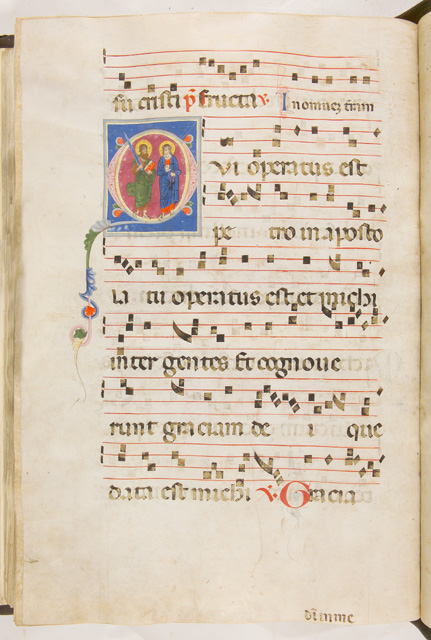 su cristi p̄ fructa v. In omnez t̄ram
Qvi operatus est
pe tro in aposto
la tu operatus est et michi
inter gentes Et cognoue
runt graciam de i que
data est michi v. Gracia
dī in me